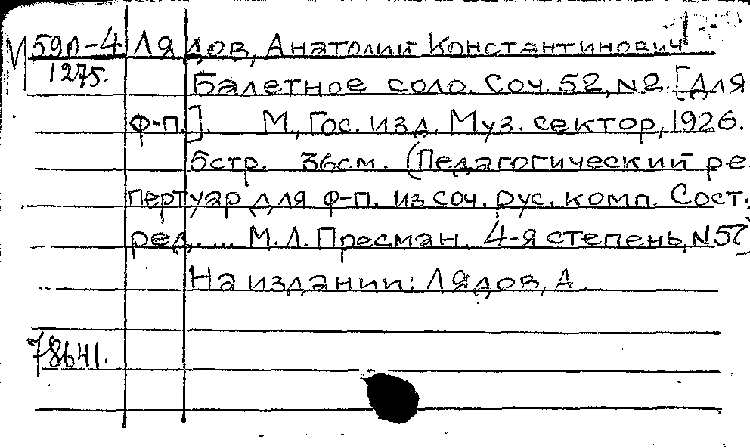 М 59л-4 Лядов, Анатолий Константинович
1275. Балетное соло. Соч. 52, №2. [Для
ф-п.]. М, Гос. изд. Муз. сектор, 1926.
5стр. 36см. (Педагогический ре
пертуар для ф-п. из соч. рус. комп. Сост.
ред. ... М.Л. Пресман. 4-я степень, №57)
На издании: Лядов, А.
78641.